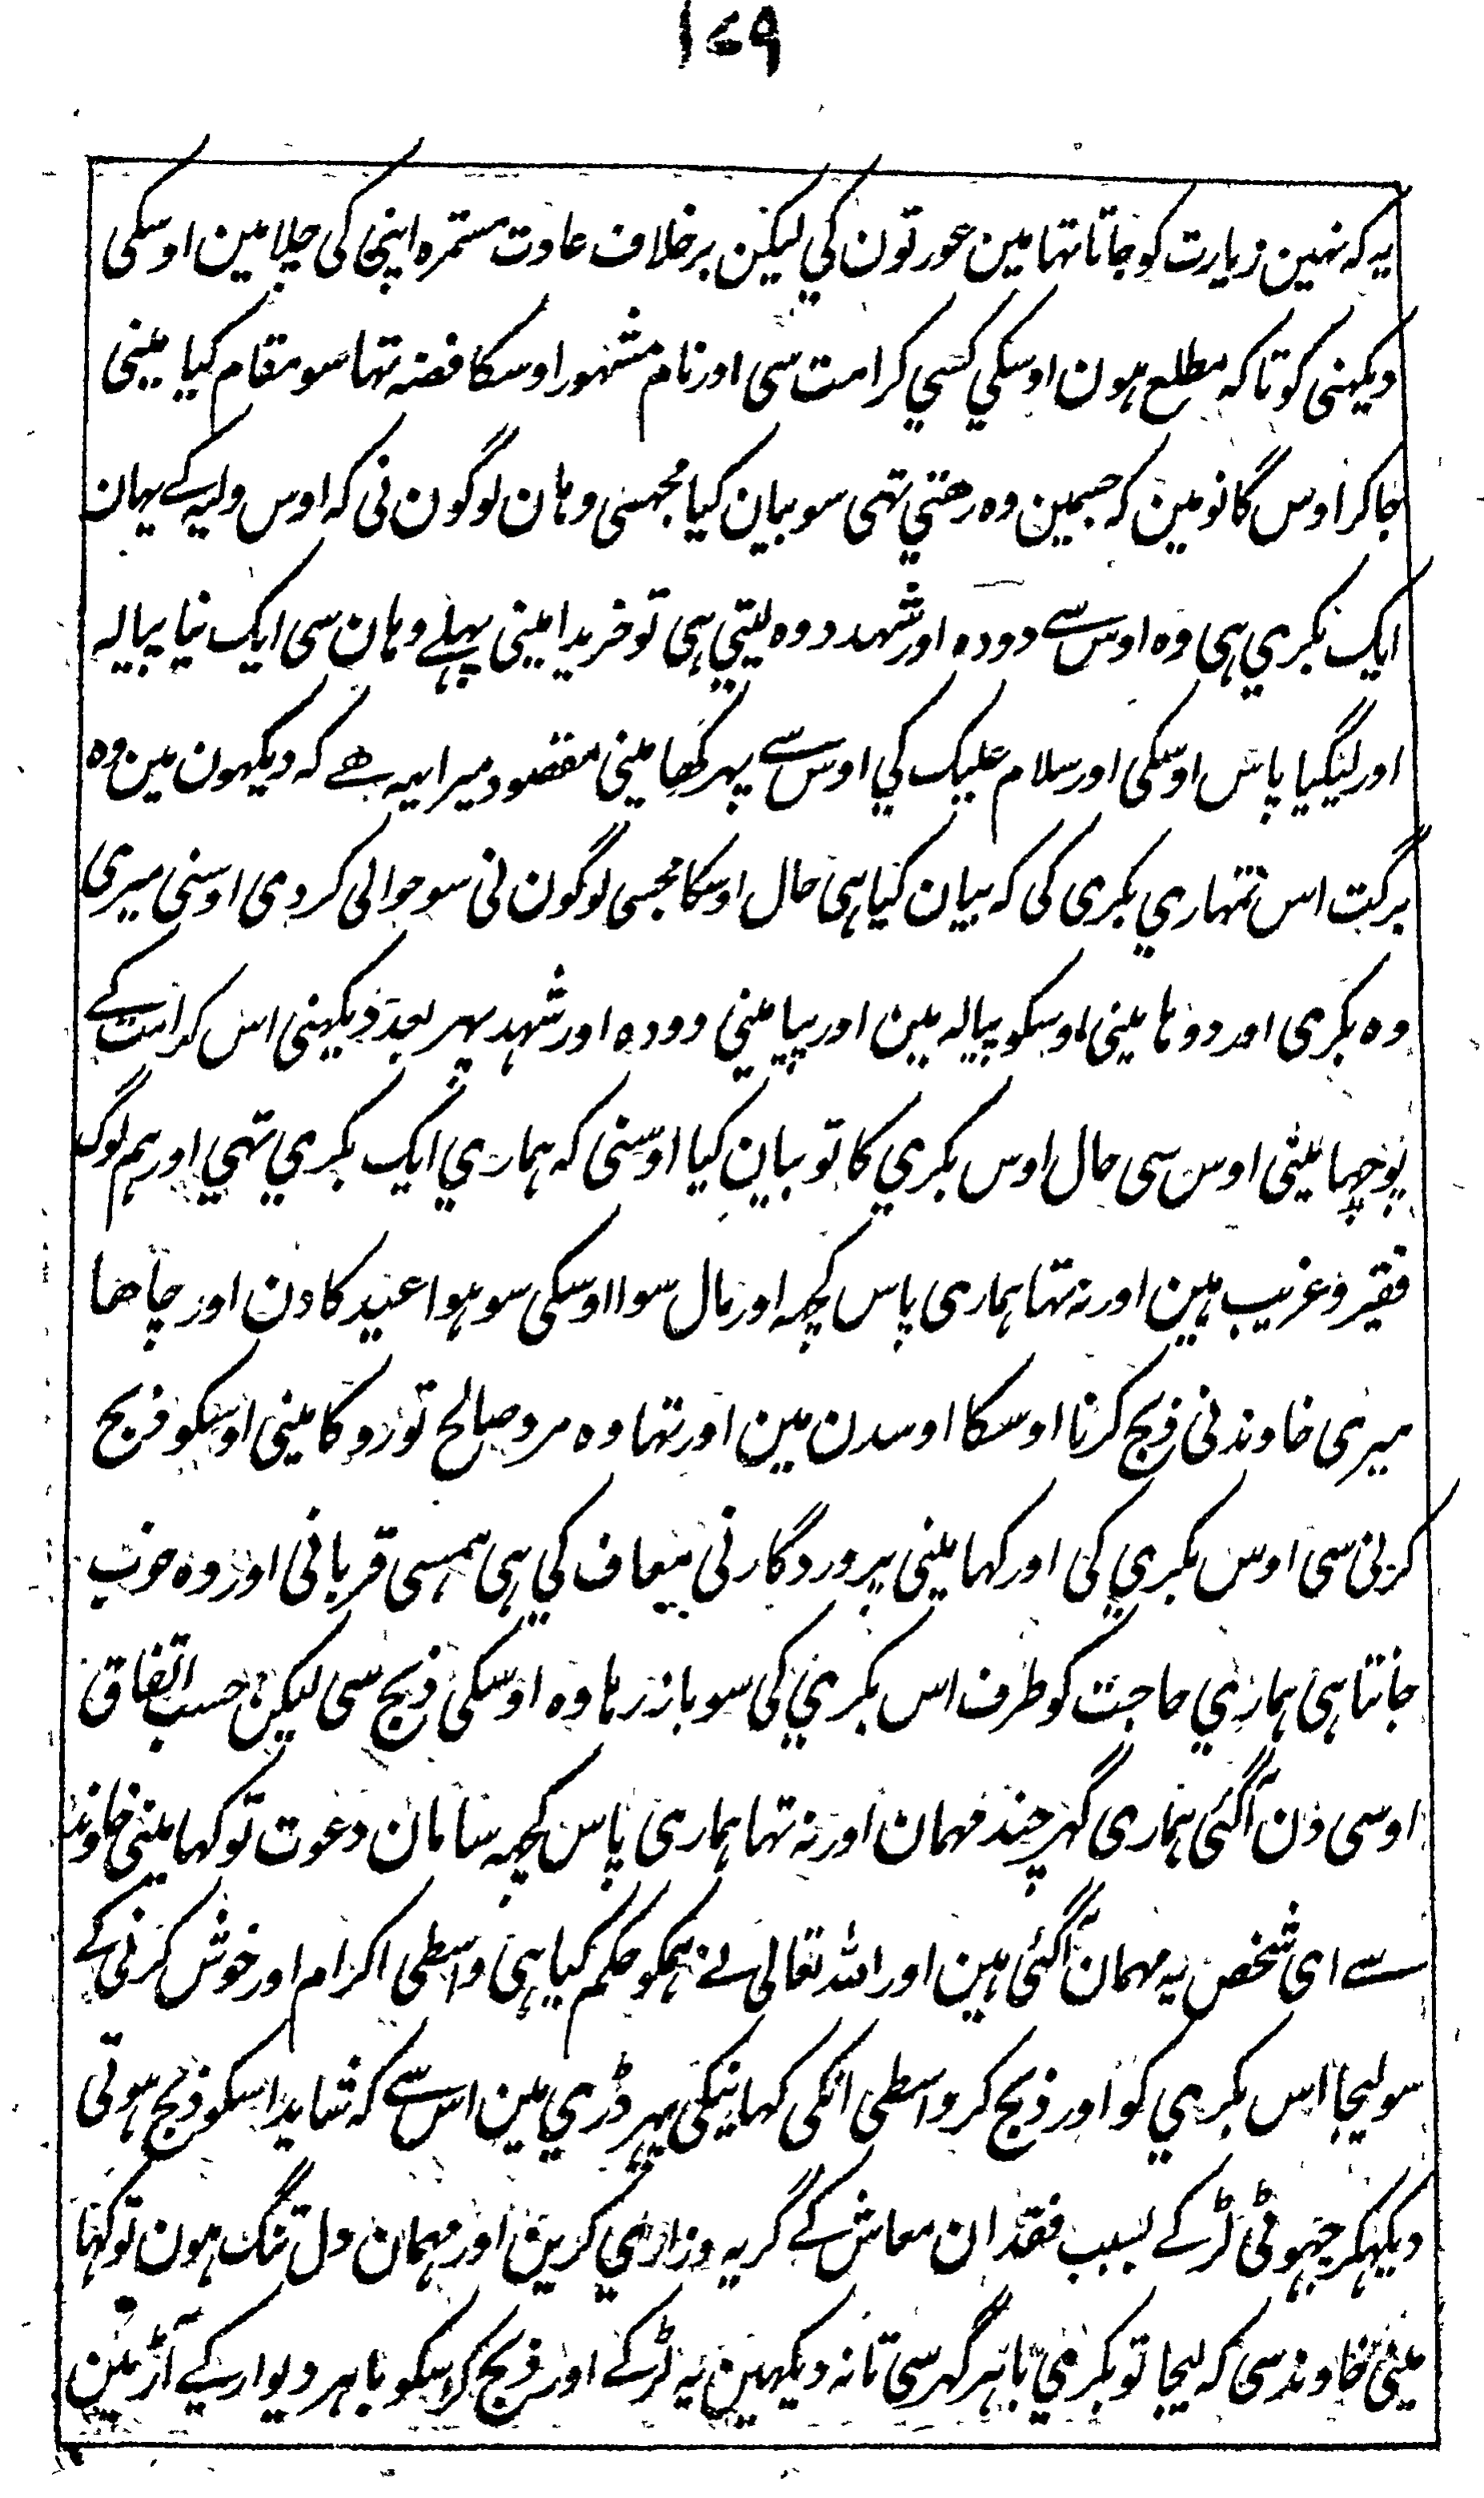 ۱۷۹
یہ کہ نہین زیارت کو جاتا تہا مین عورتون کي لیکن برخلاف عادت مستمرہ اپنی کی چلا مین اوسکی
دیکہنی کو تاکہ مطلع ہون اوسکي کسي کرامت سی اور نام مشہور اوسکا فضہ تہا سو مقام کیا مینی
جا کر اوس گانو مین کہ جسمین وہ رہتي تہی سو بیان کیا مجہسی وہان لوگون نی کہ اوس ولیہ کے یہان
ایک بکري ہی وہ اوس سے دودہ اور شہد دوہ لیتي ہی تو خریدا مینی پہلے وہان سی ایک نیا پیالہ
اور لیگیا پاس اوسکی اور سلام علیک کي اوس سے پہر کہا مینی مقصود میرا یہ ہے کہ دیکہون مین وہ
برکت اس تمہاري بکری کی کہ بیان کیا ہی حال اوسکا مجہسی لوگون نی سو حوالی کردی اوسنی میری
وہ بکری اور دوہا مینی اوسکو پیالہ مین اور پیا مینی دودہ اور شہد پہر بعد دیکہنی اس کرامت کے
پوچہا مینی اوس سی حال اوس بکري کا تو بیان کیا اوسنی کہ ہماري ایک بکري تہي اور ہم لوگ
فقیر و غریب ہین اور نہ تہا ہماری پاس کچہ اور مال سوا اوسکی سو ہوا عید کا دن اور چاہا
میری خاوند نی ذبح کرنا اوسکا اوسدن مین اور تہا وہ مرد صالح تو روکا مینی اوسکو ذبح
کرنی سی اوس بکري کی اور کہا مینی پروردگار نی معاف کي ہی ہمسی قربانی اور وہ خوب
جانتا ہی ہماري حاجت کو طرف اس بکري کی سو باز رہا وہ اوسکی ذبح سی لیکن حسب اتفاق
اوسی دن آگئی ہماری گہر چند مہمان اور نہ تہا ہماری پاس کچہ سامان دعوت تو کہا مینی خاوند
سے ای شخص یہ مہمان آگئی ہین اور اللہ تعالی نے ہمکو حکم کیا ہی واسطی اکرام اور خوش کرنی کے
سو لیجا اس بکري کو اور ذبح کر واسطی انکی کہانیکی پہر ڈري مین اس سے کہ شاید اسکو ذبح ہوتی
دیکہکر چہوٹی لڑکے بسبب فقدان معاش کے گریہ وزاري کرین اور مہمان دل تنگ ہون تو کہا
مینی خاوند سی کہ لیجا تو بکري باہر گہر سی تا نہ دیکہین یہ لڑکے اور ذبح کر اسکو باہر دیوار کے آڑ مین